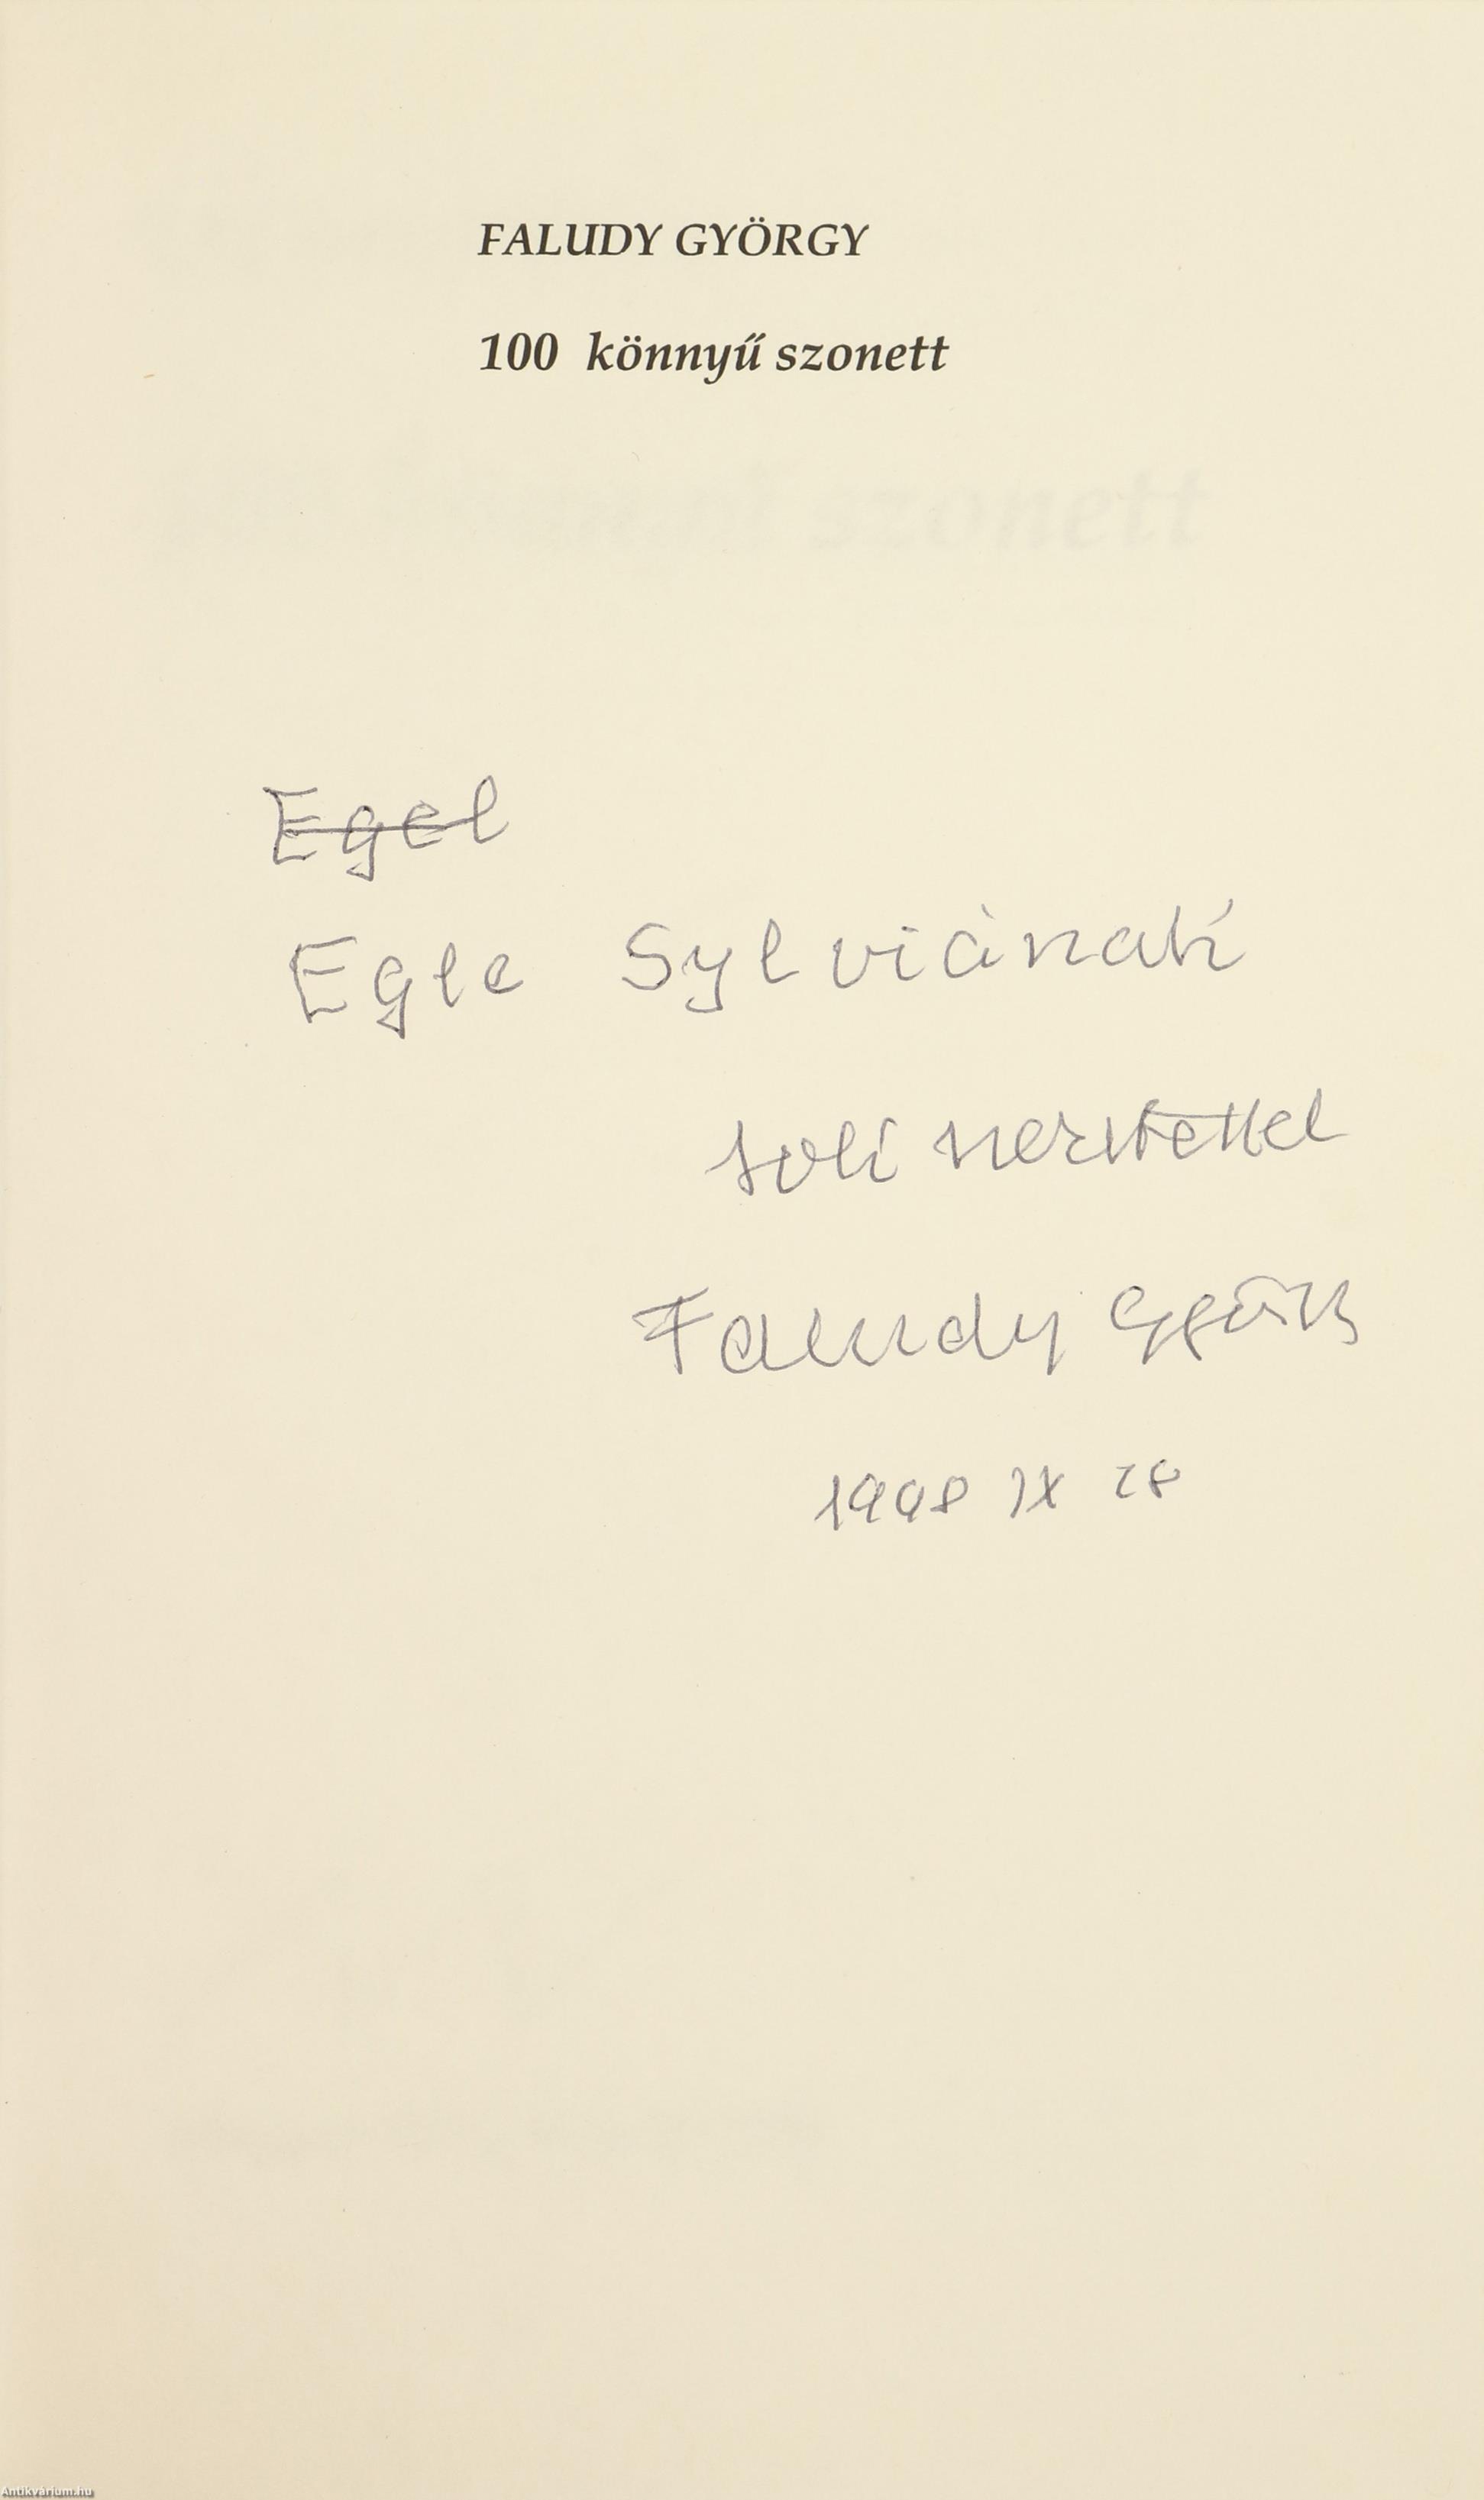 FALUDY GYÖRGY
100 könnyű szonett
Egel
Egle Sylviának
sok szeretettel
Faludy György
1998 IX 28
Antikvárium.hu